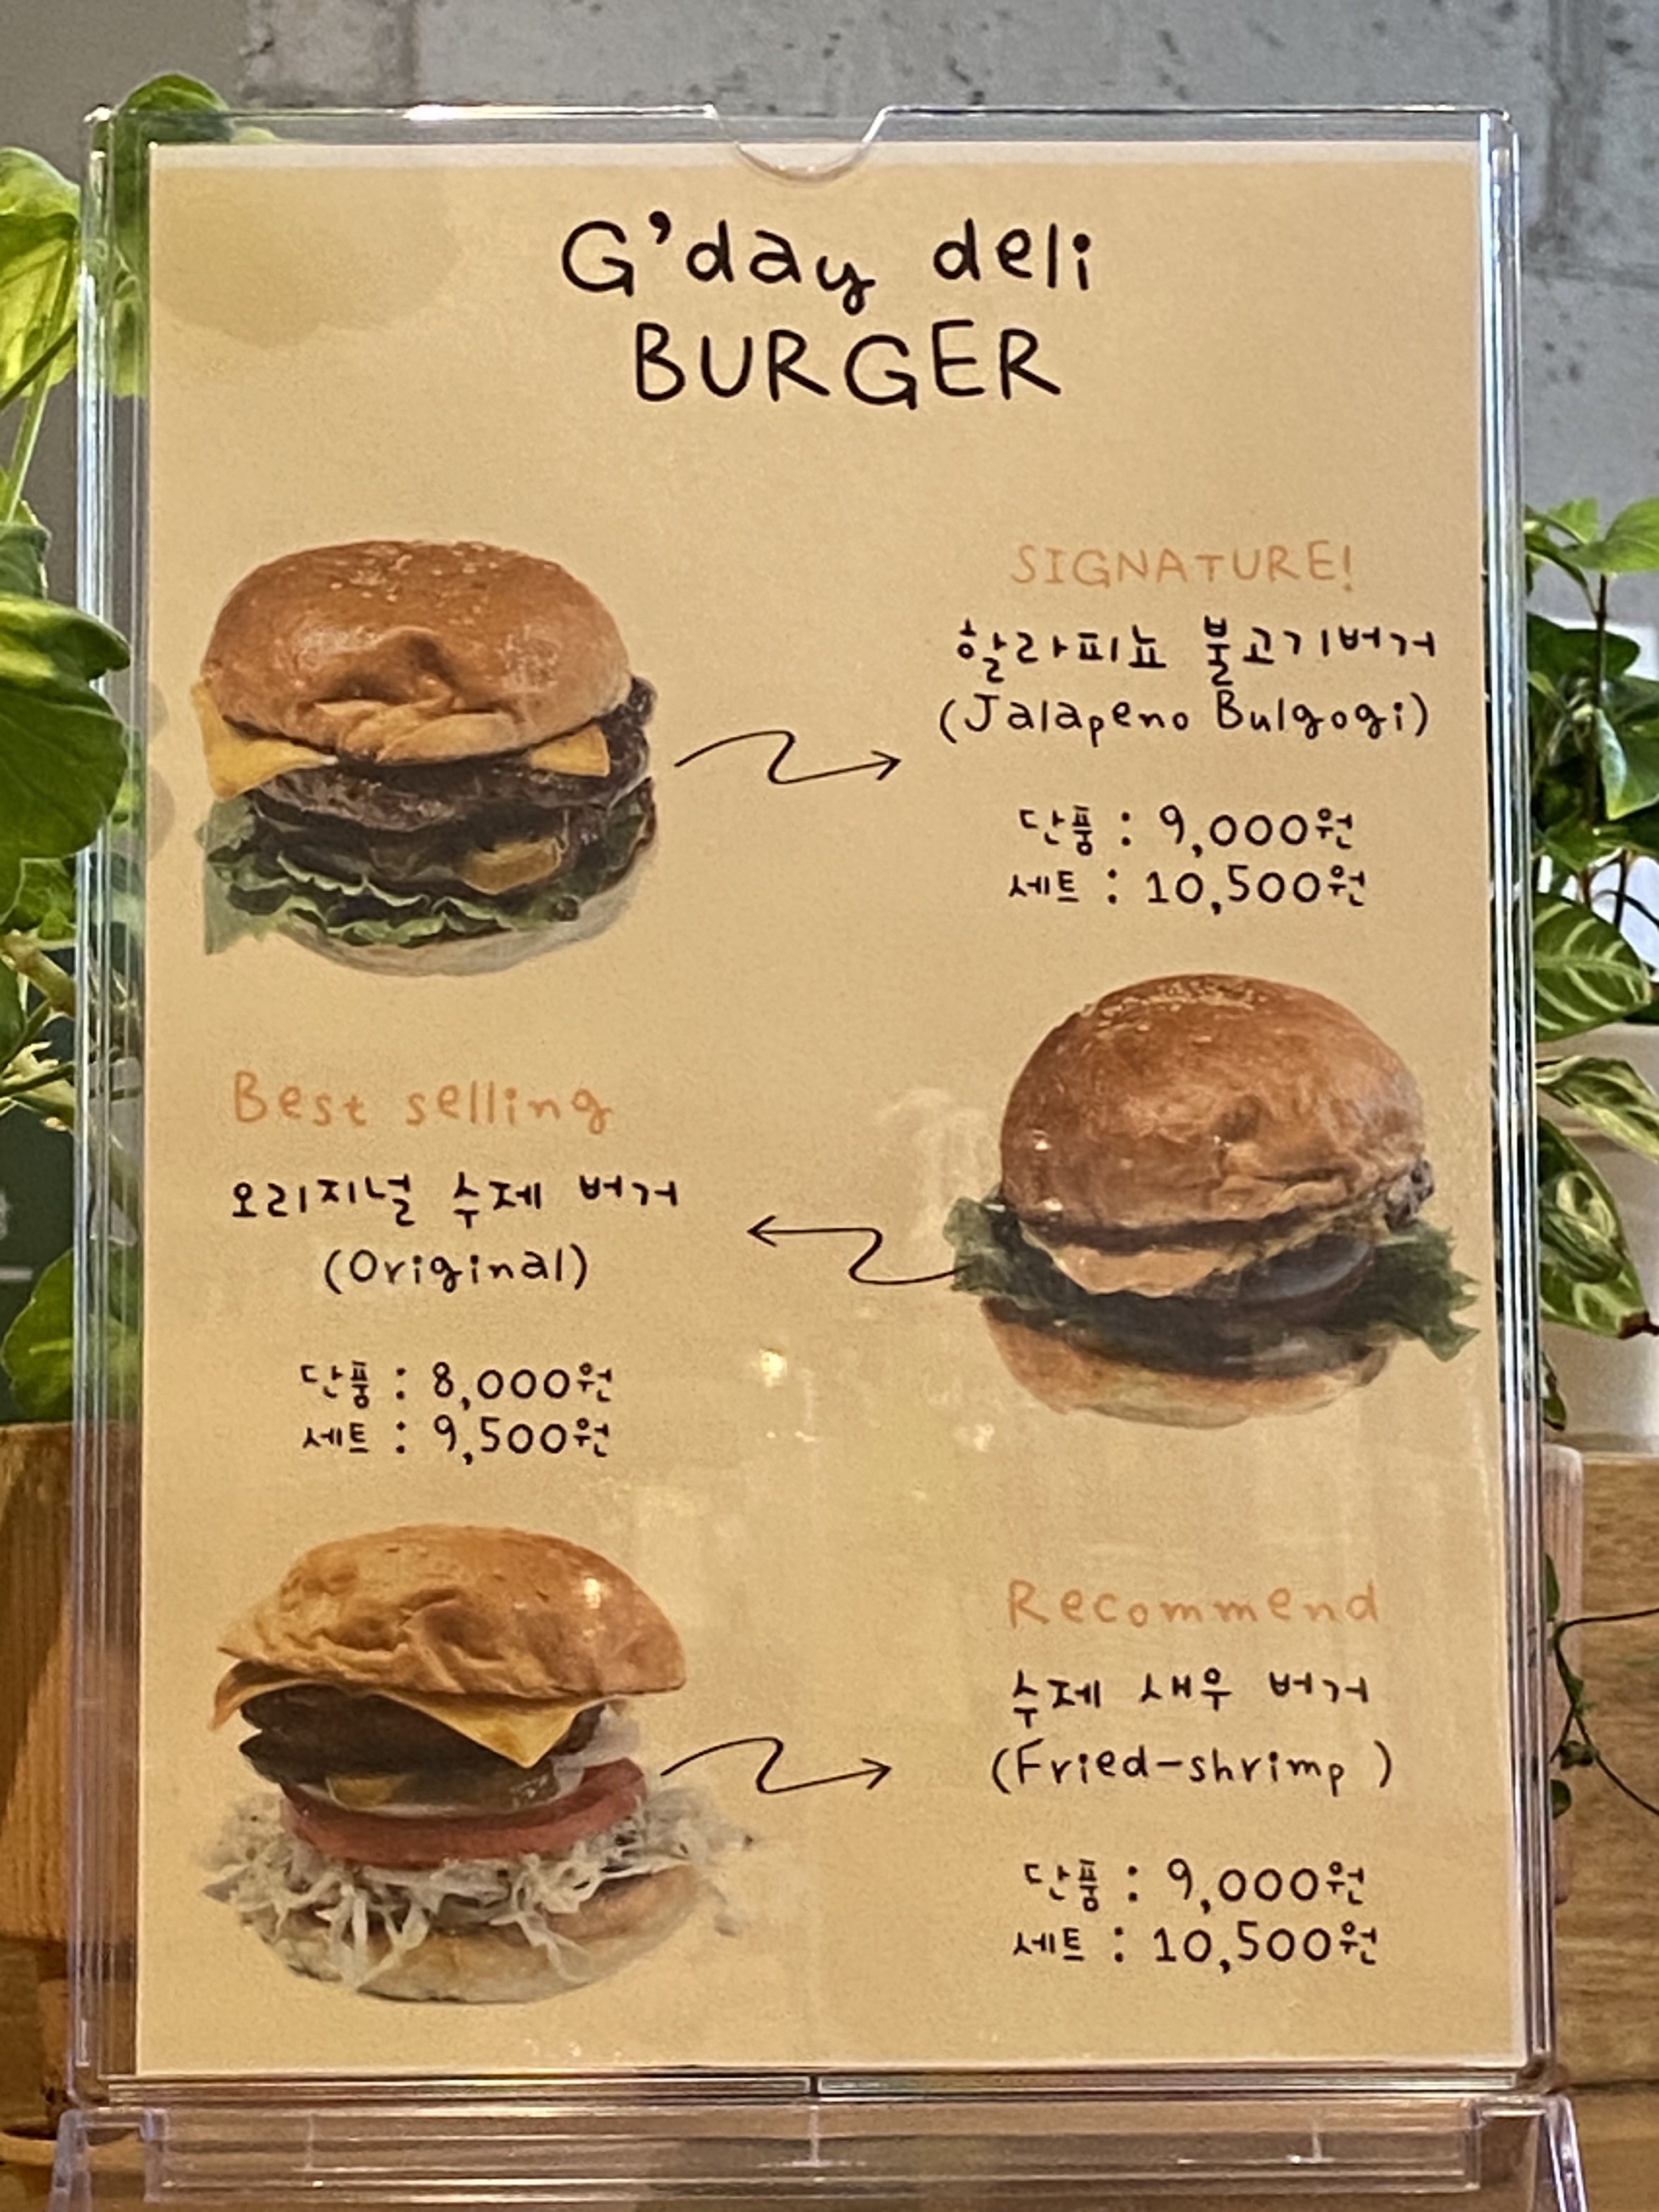 G'day deli
BURGER
SIGNATURE!
할라피뇨 불고기버거
(Jalapeno Bulgogi)
단품 : 9,000원
세트 : 10,500원
Best selling
오리지널 수제 버거
(Original)
단품 : 8,000원
세트 : 9,500원
Recommend
수제 새우 버거
(Fried-shrimp )
단품 : 9,000원
세트 : 10,500원